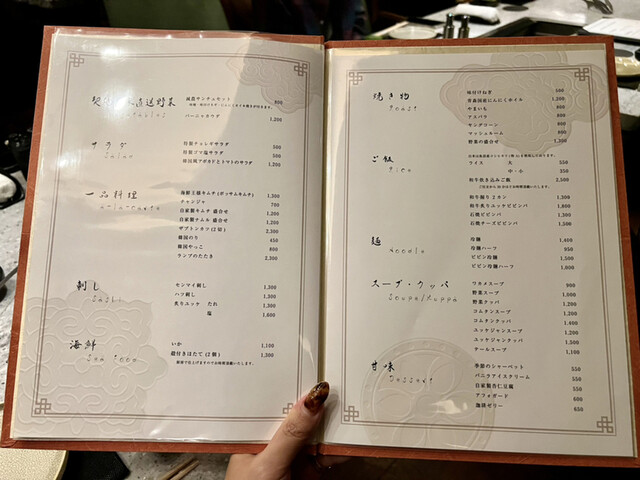 直送野菜
減農サンチュセット 800
バーニャカウダ 1,200
サラダ
特製チョレギサラダ 900
特製ゴマ塩サラダ 900
韓国風アボカドとトマトのサラダ 1,300
一品料理
A la carte
海鮮王様キムチ(ポッサムキムチ) 1,300
チャンジャ 700
自家製キムチ 盛合せ 1,200
自家製ナムル 盛合せ 1,200
ザブトンカツ(2切) 2,300
韓国のり 450
韓国やっこ 800
ランプのたたき 2,300
刺し
Sashi
センマイ刺し 1,300
ハツ刺し 1,300
炙りユッケ たれ 1,300
塩 1,600
海鮮
Sea Food
いか 1,100
殻付きほたて(2個) 1,300
焼き物
Roast
味付けねぎ 500
青森県産にんにくホイル 1,200
やまいも 800
アスパラ 800
ヤングコーン 800
マッシュルーム 800
野菜の盛合せ 1,300
ご飯
Rice
ライス 大 550
中・小 350
和牛炊き込みご飯 2,500
和牛握り2カン 1,300
和牛炙りユッケビビンバ 1,800
石焼ビビンバ 1,300
石焼チーズビビンバ 1,500
麺
Noodle
冷麺 1,400
冷麺ハーフ 950
ビビン冷麺 1,500
ビビン冷麺ハーフ 1,000
スープ・クッパ
Soupe/Kuppa
ワカメスープ 900
野菜スープ 1,000
野菜クッパ 1,200
コムタンスープ 1,200
コムタンクッパ 1,400
ユッケジャンスープ 1,200
ユッケジャンクッパ 1,500
テールスープ 1,100
甘味
Dessert
季節のシャーベット 550
バニラアイスクリーム 550
自家製杏仁豆腐 550
アフォガード 600
珈琲ゼリー 650